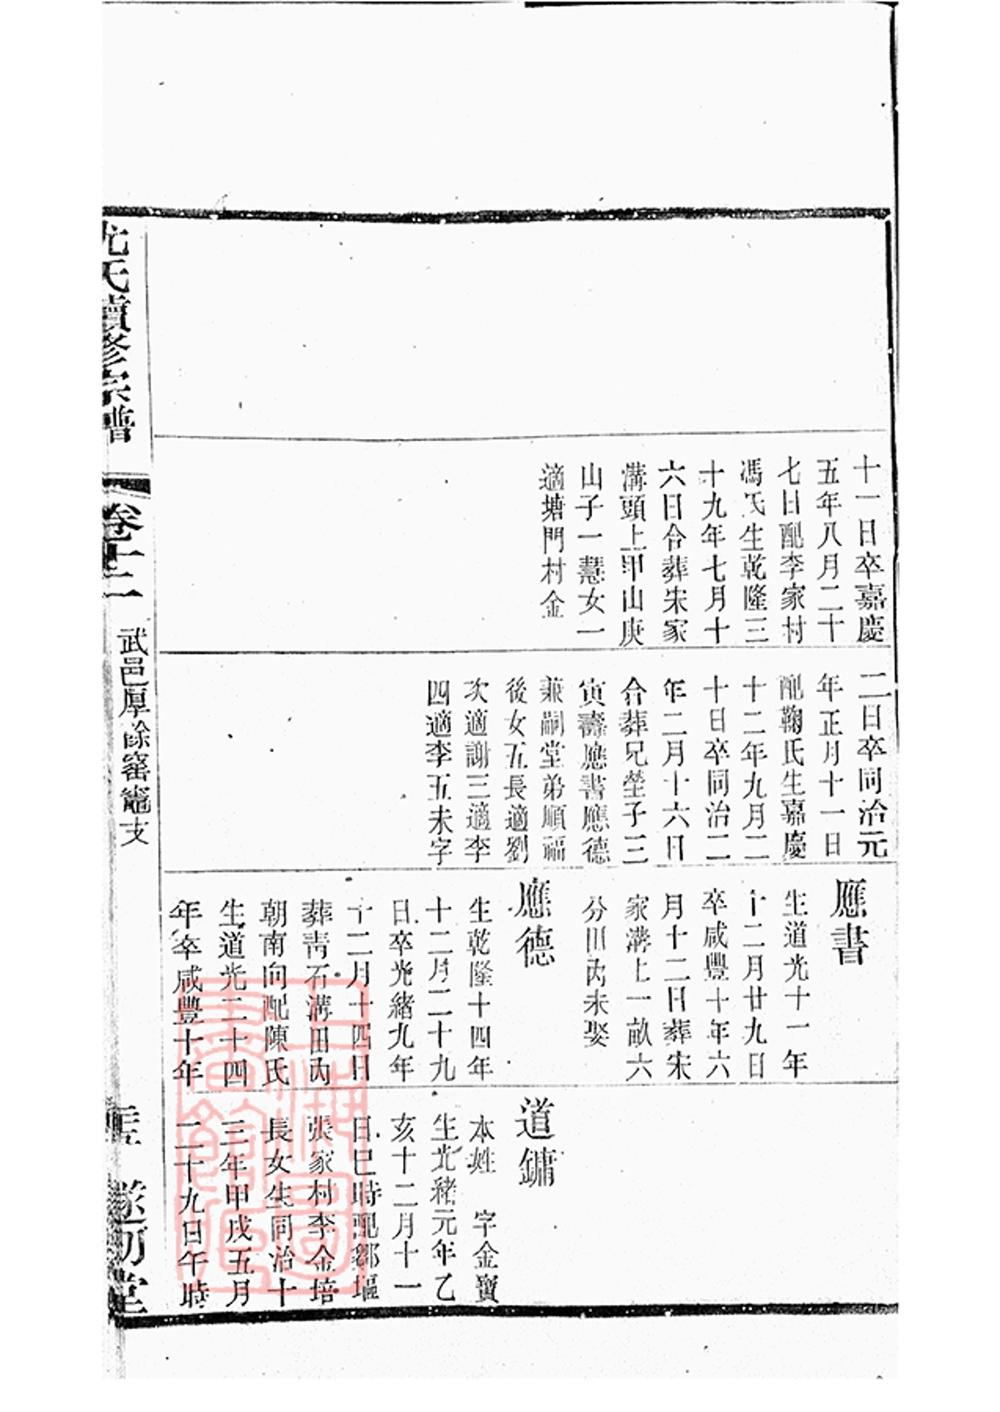 十一日卒嘉慶
五年八月二十
七日配李家村
馮氏生乾隆三
十九年七月十
六日合葬朱家
溝頭上甲山庚
山子一慧女一
適塘門村金
二日卒同治元
年正月十一日
配鞠氏生嘉慶
十二年九月二
十日卒同治二
年二月十六日
合葬兄塋子三
寅壽應書應德
兼嗣堂弟順福
後女五長適劉
次適謝三適李
四適李五未字
應書
生道光十一年
十二月廿九日
卒咸豐十年六
月十二日葬宋
家溝上一畝六
分田內未娶
應德
生乾隆十四年
十二月二十九
日卒光緒九年
十二月十四日
葬青石溝田內
朝南向配陳氏
生道光二十四
年卒咸豐十年
道鏞
本姓 字金寶
生光緒元年乙
亥十二月十一
日巳時配鄉
張家村李金培
長女生同治十
三年甲戌五月
二十九日午時
尤氏續修宗譜
卷十二
武邑厚餘窑竈支
遂初堂
上海圖書館藏